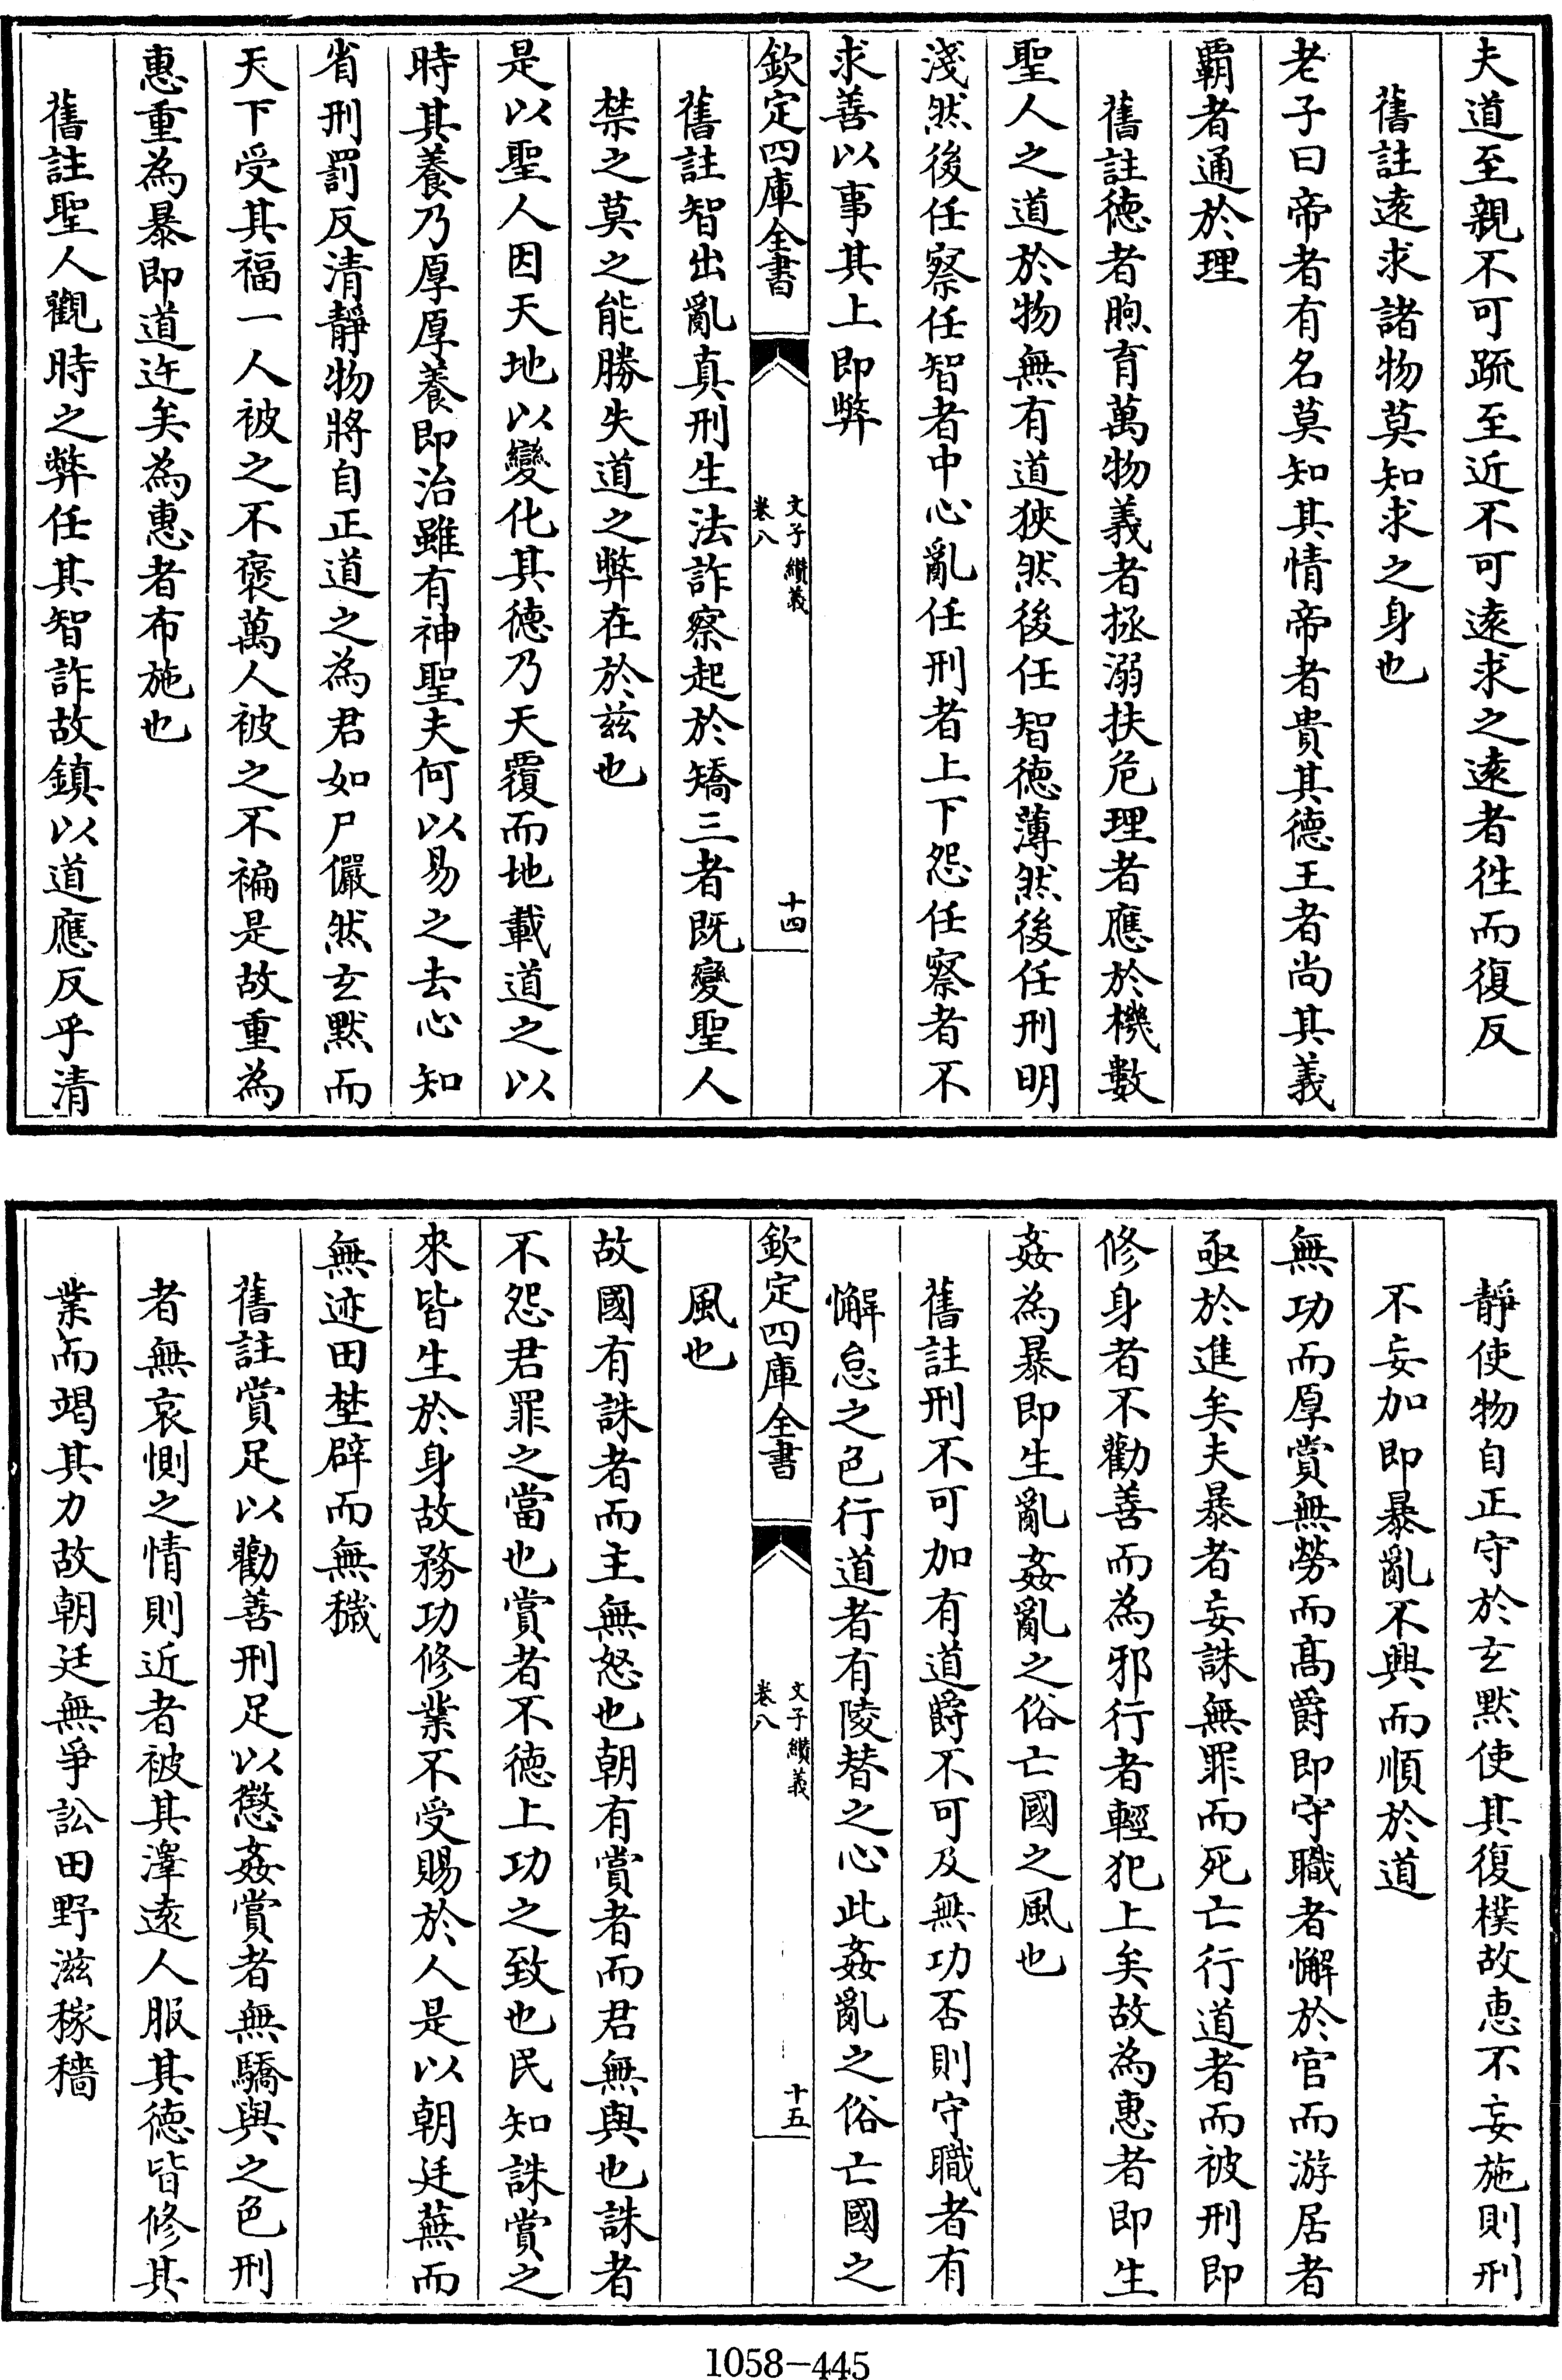 夫道至親不可疏至近不可遠求之遠者徃而復反
舊註遠求諸物莫知求之身也
老子曰帝者有名莫知其情帝者貴其德王者尚其義
覇者通於理
舊註德者煦育萬物義者拯溺扶危理者應於機數
聖人之道於物無有道狹然後任智德薄然後任刑明
淺然後任察任智者中心亂任刑者上下怨任察者不
求善以事其上即弊
欽定四庫全書
文子纘義
卷八
十四
舊註智出亂真刑生法詐察起於矯三者既變聖人
禁之莫之能勝失道之弊在於兹也
是以聖人因天地以變化其德乃天覆而地載道之以
時其養乃厚厚養即治雖有神聖夫何以易之去心知
省刑罰反清靜物將自正道之為君如尸儼然玄默而
天下受其福一人被之不褒萬人被之不褊是故重為
惠重為暴即道迕矣為惠者布施也
舊註聖人觀時之弊任其智詐故鎮以道應反乎清
靜使物自正守於玄默使其復樸故恵不妄施則刑
不妄加即暴亂不興而順於道
無功而厚賞無勞而高爵即守職者懈於官而游居者
亟於進矣夫暴者妄誅無罪而死亡行道者而被刑即
修身者不勸善而為邪行者輕犯上矣故為惠者即生
姦為暴即生亂姦亂之俗亡國之風也
舊註刑不可加有道爵不可及無功否則守職者有
懈怠之色行道者有陵替之心此姦亂之俗亡國之
欽定四庫全書
文子纘義
卷八
十五
風也
故國有誅者而主無怒也朝有賞者而君無與也誅者
不怨君罪之當也賞者不德上功之致也民知誅賞之
來皆生於身故務功修業不受賜於人是以朝廷蕪而
無迹田埜辟而無穢
舊註賞足以勸善刑足以懲姦賞者無驕與之色刑
者無哀惻之情則近者被其澤遠人服其德皆修其
業而竭其力故朝廷無爭訟田野滋稼穡
1058-445